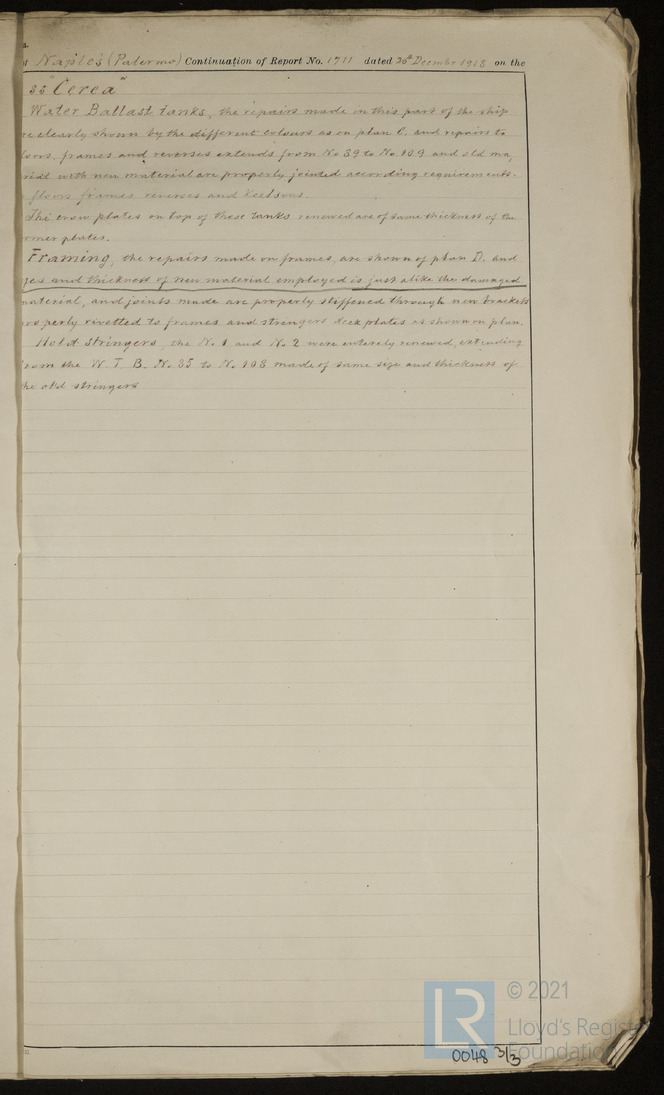 Naples (Palermo) Continuation of Report No. 1711 dated 26th Decembr 1918 on the
ss "Cerea"
Water Ballast tanks, the repairs made in this part of the ship
re clearly shown by the different colours as on plan C. and repairs to
loors, frames and reverses extends from No 39 to No. 109 and old ma,
with new material are properly jointed according requirements.
floors frames reverses and keelsons.
The crow plates on top of these tanks renewed are of same thickness of the
rmer plates.
Framing, the repairs made on frames, are shown of plan D. and
zes and thickness of new material employed is just alike the damaged
material, and joints made are properly stiffened through new brackets
properly rivetted to frames and strengers deck plates as shown on plan.
Hold Stringers, the No. 1 and No. 2 were enterely renewed, extending
from the W. T. B. No. 35 to No. 108 made of same size and thickness of
he old stringers
© 2021
LR
Lloyd's Regist
Foundatio
0048 3/3